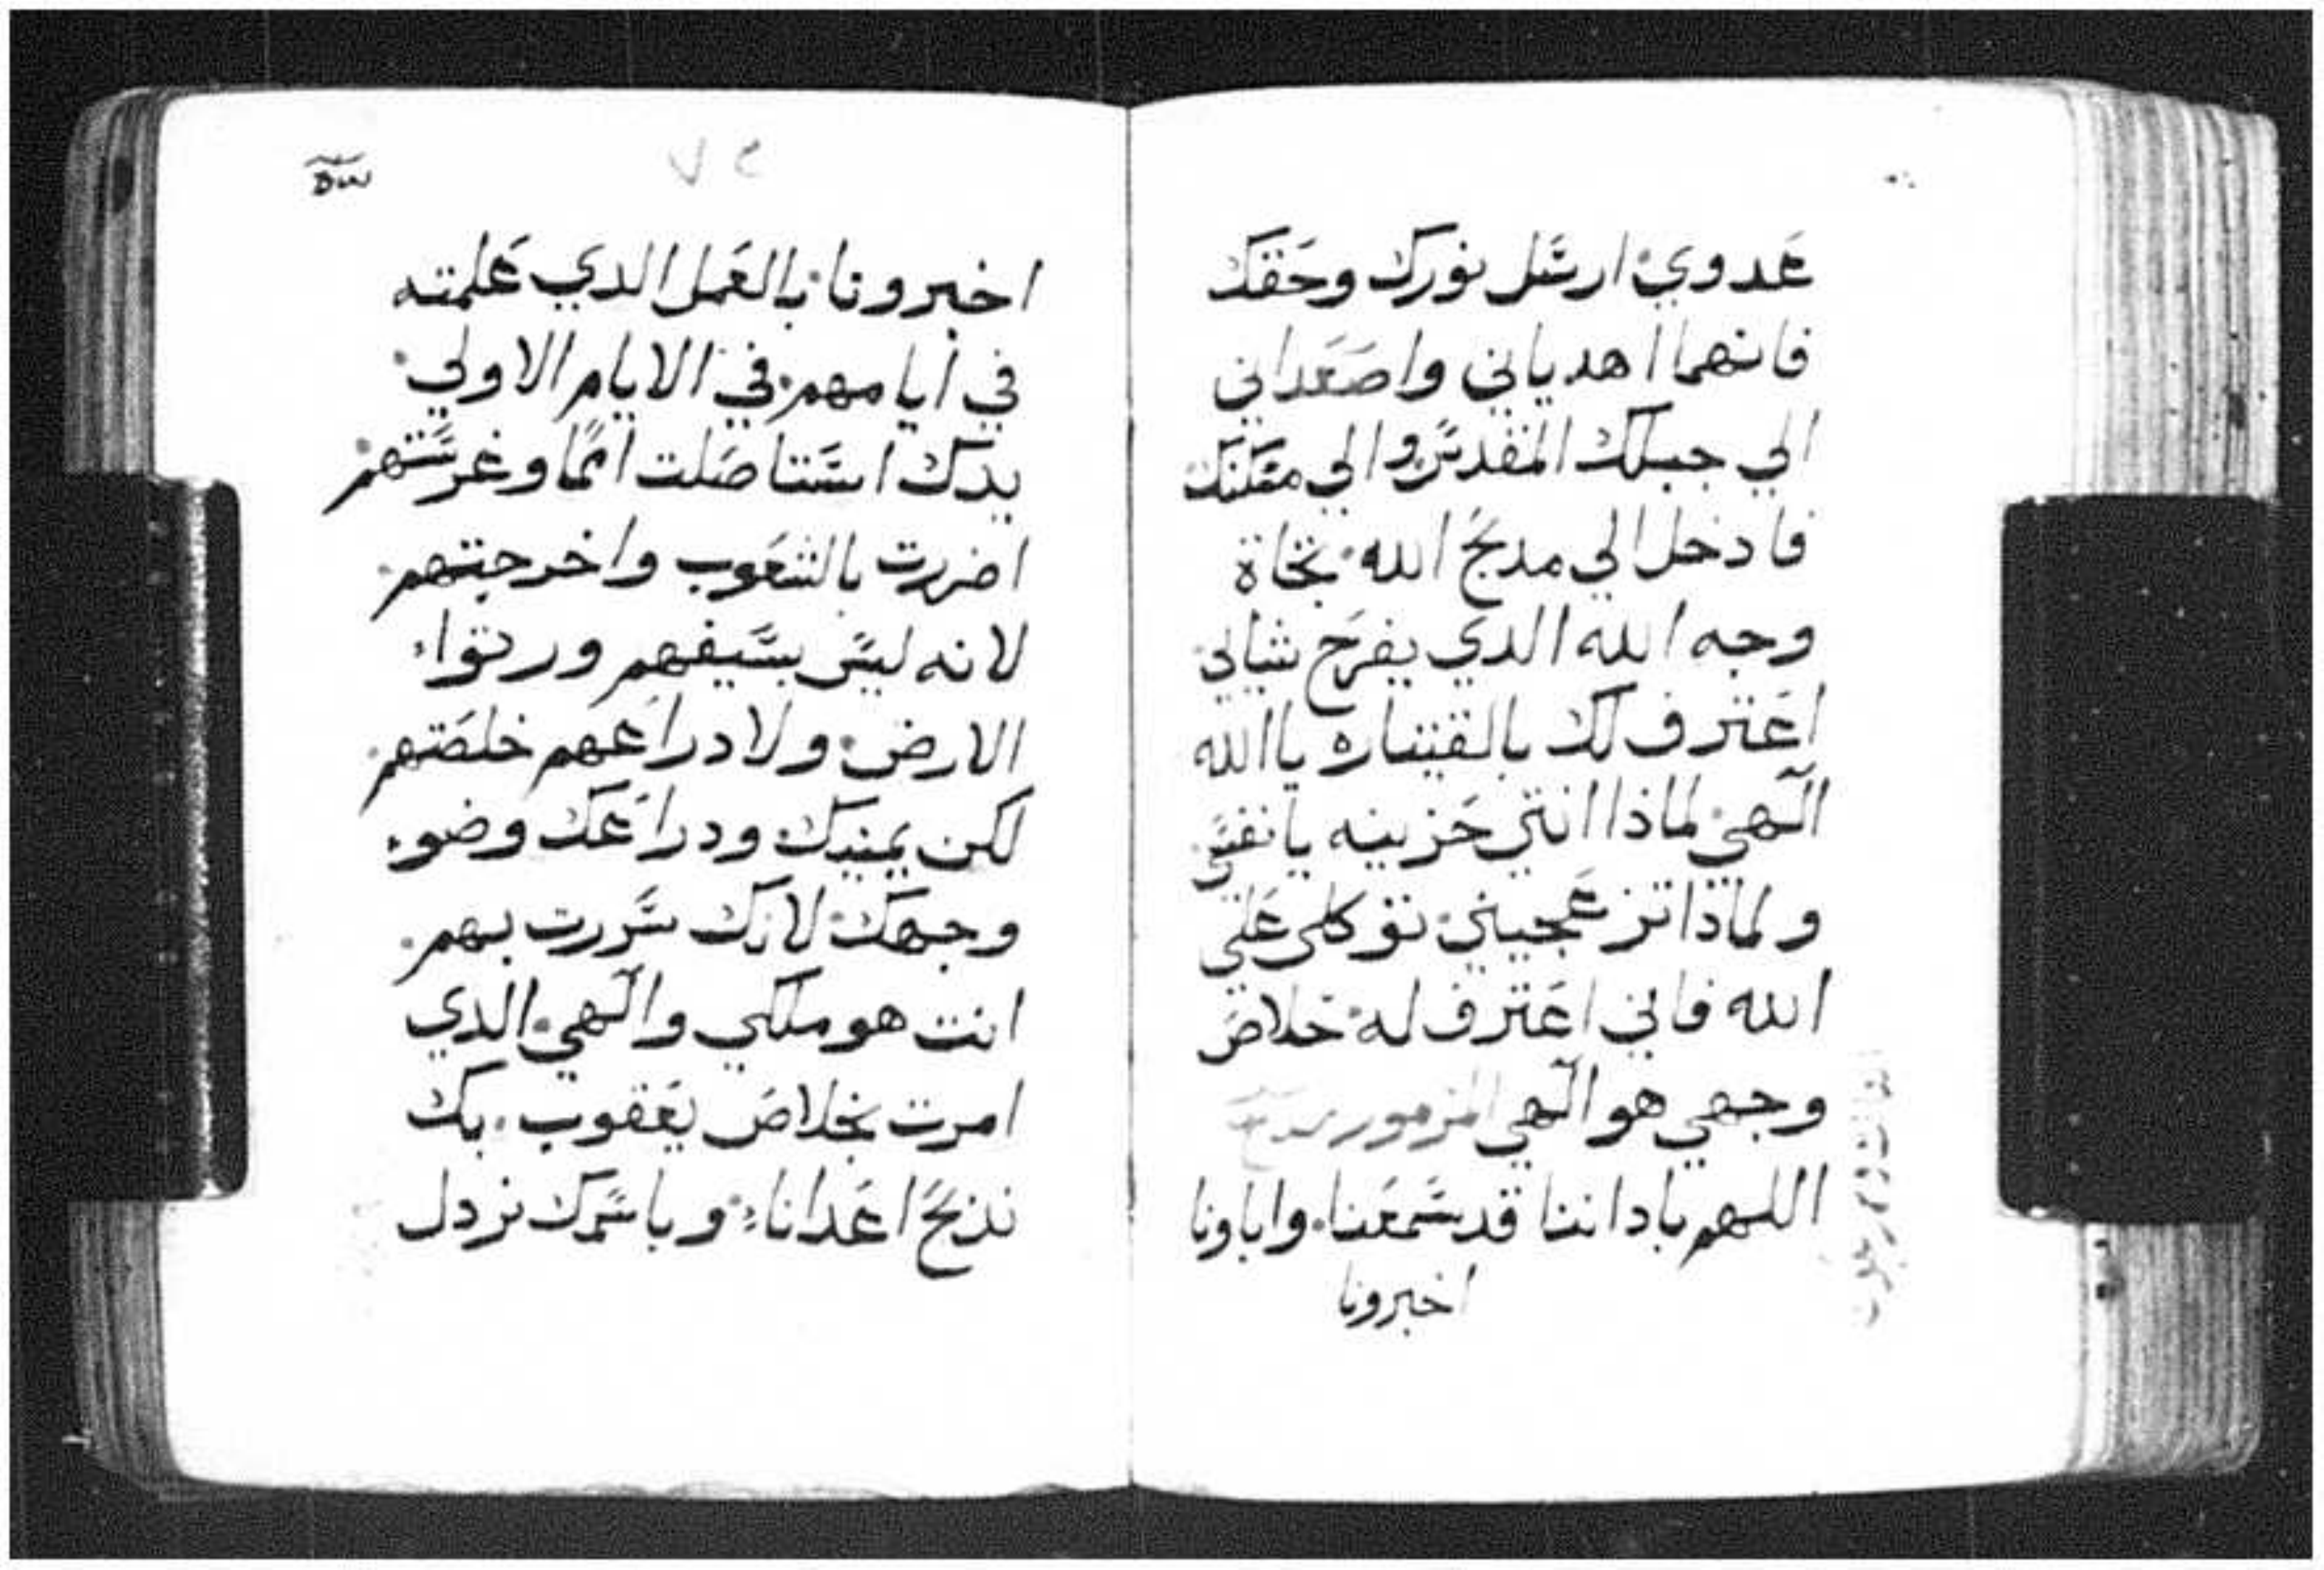 عدوي ارسل نورك وحقك
فانهما اهدياني واصعداني
الي جبلك المقدس والي مسكنك
فادخل الي مدبح الله تجاة
وجه الله الدي يفرح شبابي
اعترف لك بالقيتاره يا الله
الهي لماذا انتي حزينه يا نفسي
ولماذا تزعجيني توكلى علي
الله فاني اعترف له خلاص
وجهي هو الهي المزمور
اللهم باداننا قد سمعنا واباونا
اخبرونا
٧ ع
اخبرونا بالعمل الدي عملته
في ايامهم في الايام الاولي
يدك استاصلت امما وغرستهم
اضررت بالشعوب واخرجتهم
لانه ليس بسيفهم ورتوا
الارض ولا دراعهم خلصتهم
لكن يمينك ودراعك وضوء
وجهك لانك سررت بهم
انت هو ملكي والهي الدي
امرت بخلاص يعقوب بك
نذبح اعدانا وباسمك نردل